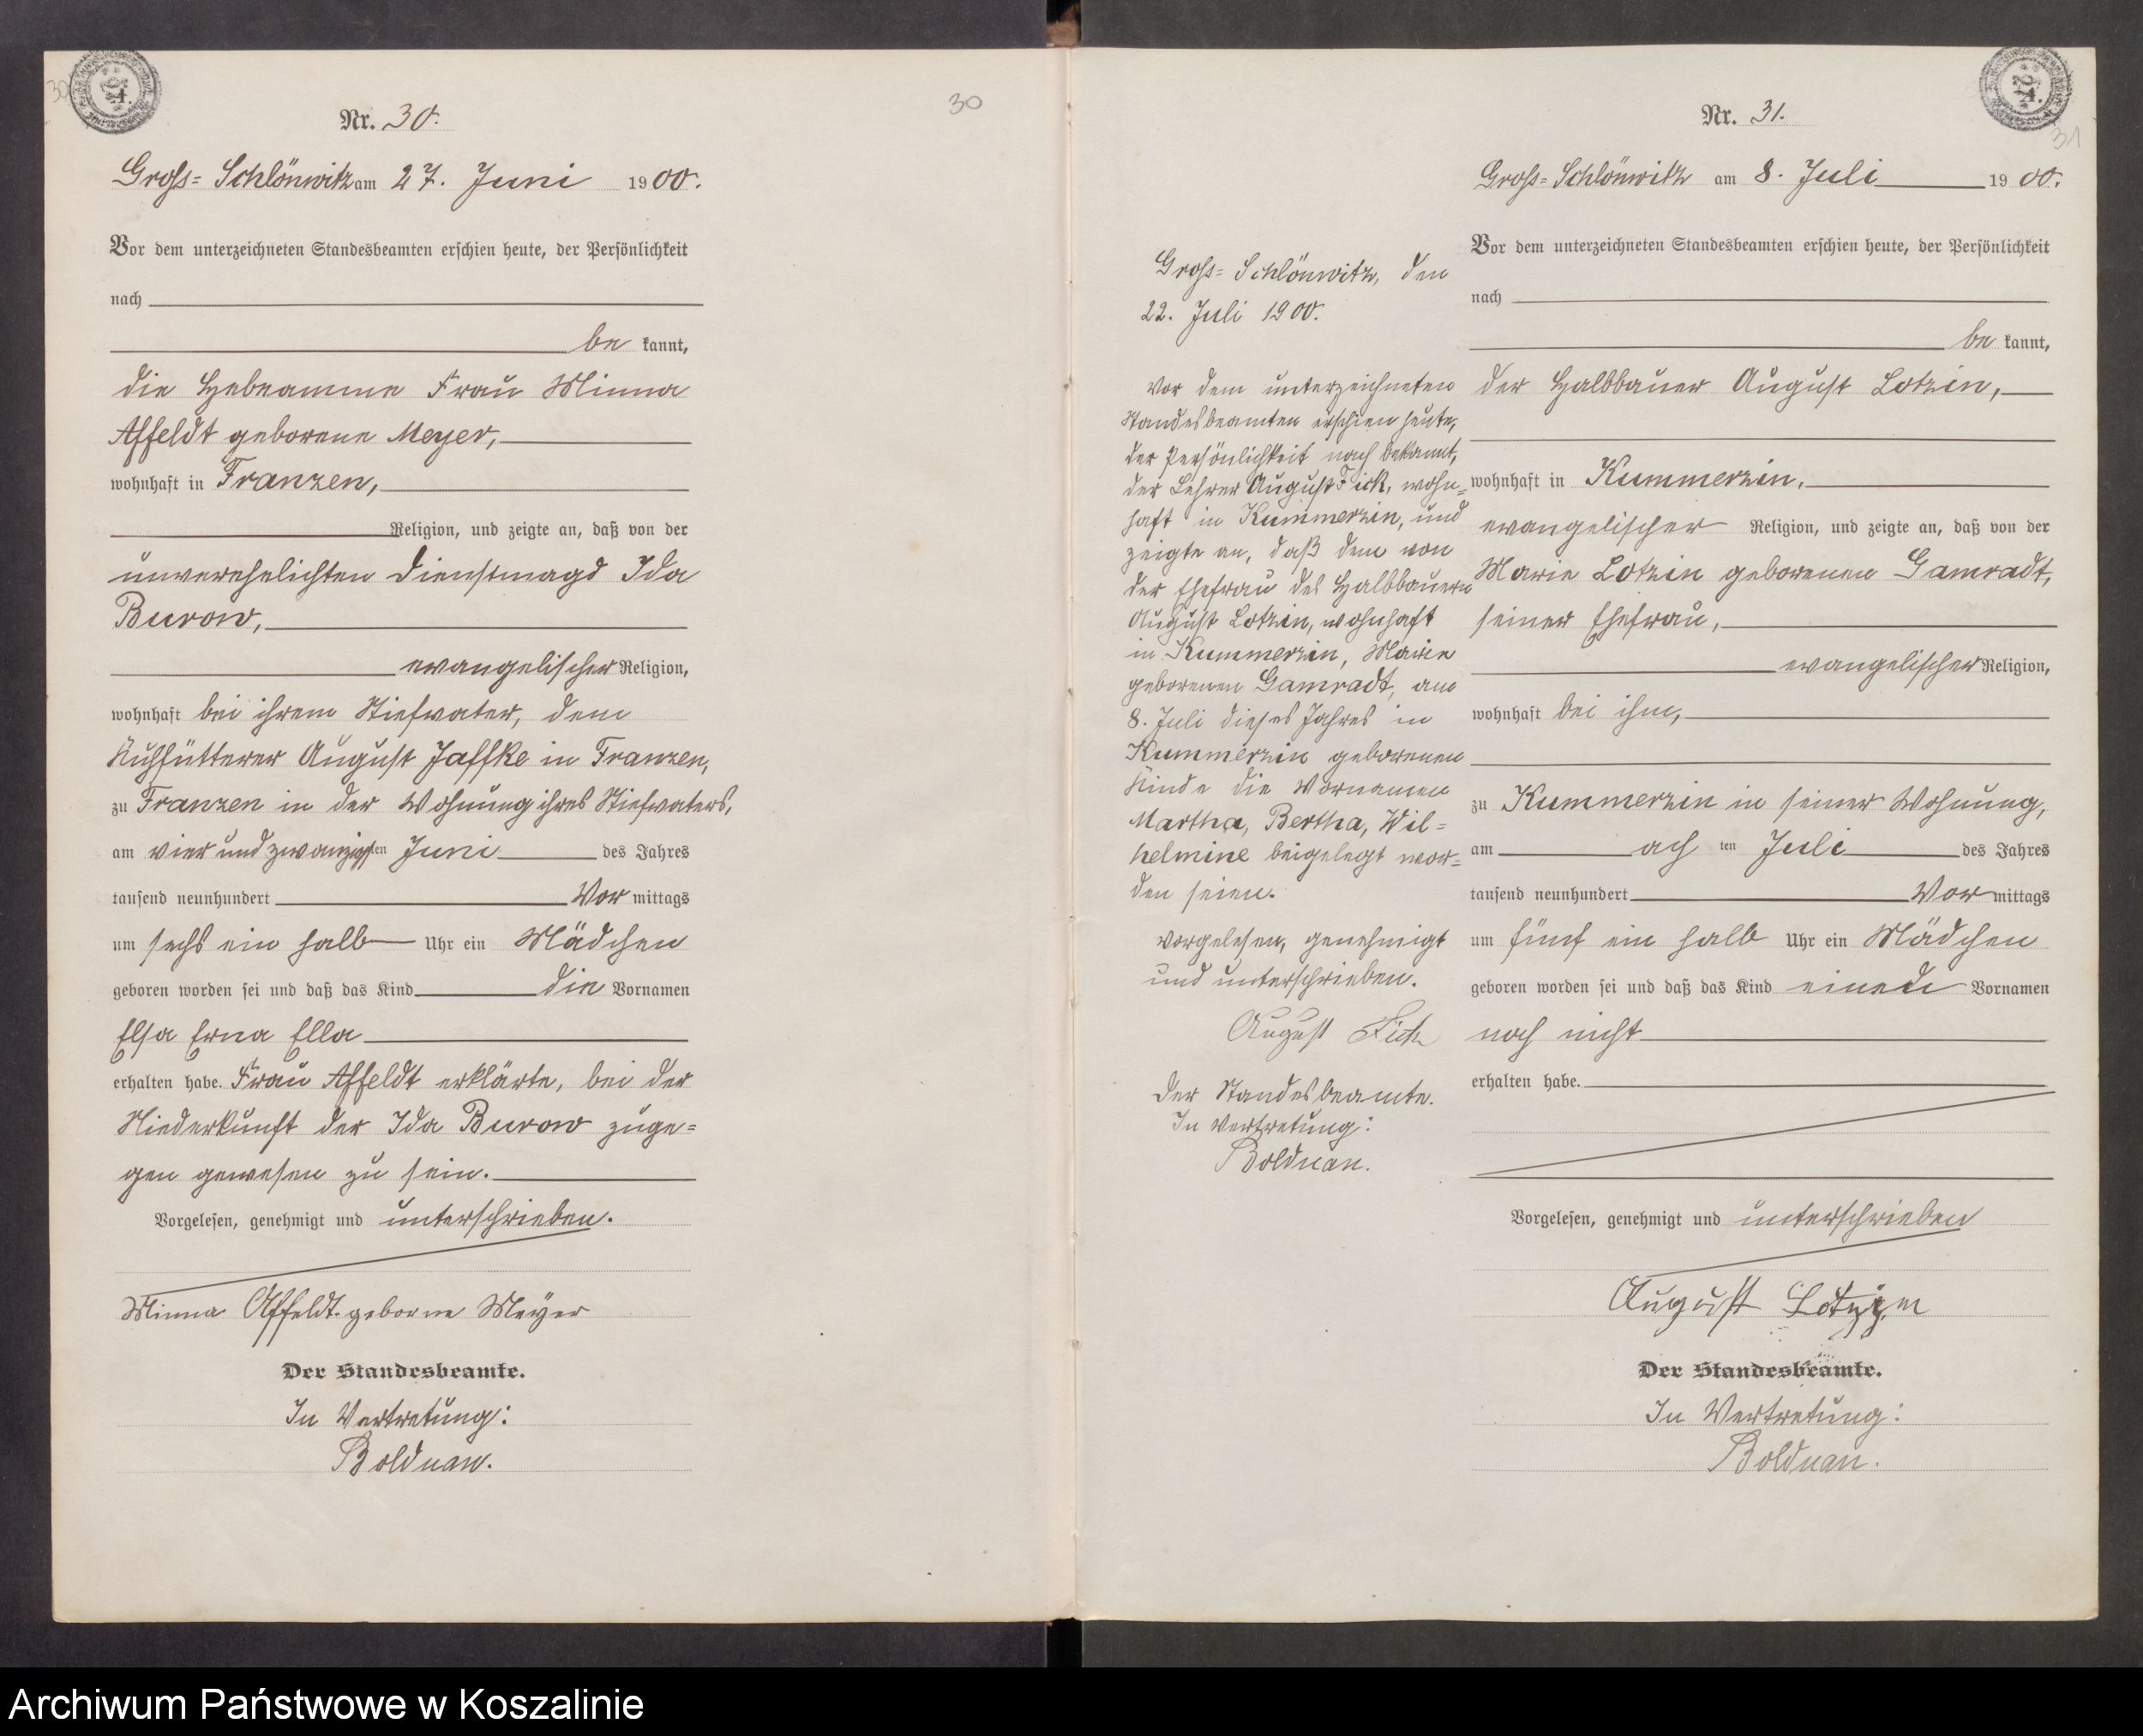 30
Nr. 30.
Gross-Schlönwitz am 27. Juni 1900.
Vor dem unterzeichneten Standesbeamten erschien heute, der Persönlichkeit
nach
be kannt,
die Hebeamme Frau Minna
Affeldt geborene Meyer,
wohnhaft in Franzen,
Religion, und zeigte an, daß von der
unverehelichten Dienstmagd Ida
Burow,
evangelischer Religion,
wohnhaft bei ihrem Stiefvater, dem
Kuhfütterer August Jaffke in Franzen,
zu Franzen in der Wohnung ihres Stiefvaters,
am vier und zwanzigsten Juni des Jahres
tausend neunhundert Vor mittags
um sechs ein halb Uhr ein Mädchen
geboren worden sei und daß das Kind die Vornamen
Elsa Erna Ella
erhalten habe. Frau Affeldt erklärte, bei der
Niederkunft der Ida Burow zuge=
gen gewesen zu sein.
Vorgelesen, genehmigt und unterschrieben.
Minna Affeldt geborne Meyer
Der Standesbeamte.
In Vertretung:
Bolduan.
30
Gross-Schlönwitz, den
22. Juli 1900.
Vor dem unterzeichneten
Standesbeamten erschien heute,
der Persönlichkeit nach bekannt,
der Lehrer August Fick, wohn=
haft in Kummerzin, und
zeigte an, daß dem von
der Ehefrau des Halbbauern
August Lotzin, wohnhaft
in Kummerzin, Marie
geborenen Gamradt, am
8. Juli dieses Jahres in
Kummerzin geborenen
Kinde die Vornamen
Martha, Bertha, Wil=
helmine beigelegt wor=
den seien.
Vorgelesen, genehmigt
und unterschrieben.
August Fick
Der Standesbeamte.
In Vertretung:
Bolduan.
31
Nr. 31.
Gross-Schlönwitz am 8. Juli 1900.
Vor dem unterzeichneten Standesbeamten erschien heute, der Persönlichkeit
nach
be kannt,
der Halbbauer August Lotzin,
wohnhaft in Kummerzin,
evangelischer Religion, und zeigte an, daß von der
Marie Lotzin geborenen Gamradt,
seiner Ehefrau,
evangelischer Religion,
wohnhaft bei ihm,
zu Kummerzin in seiner Wohnung,
am ach ten Juli des Jahres
tausend neunhundert Vor mittags
um fünf ein halb Uhr ein Mädchen
geboren worden sei und daß das Kind einen Vornamen
noch nicht
erhalten habe.
Vorgelesen, genehmigt und unterschrieben
August Lotzin
Der Standesbeamte.
In Vertretung:
Bolduan.
Archiwum Państwowe w Koszalinie